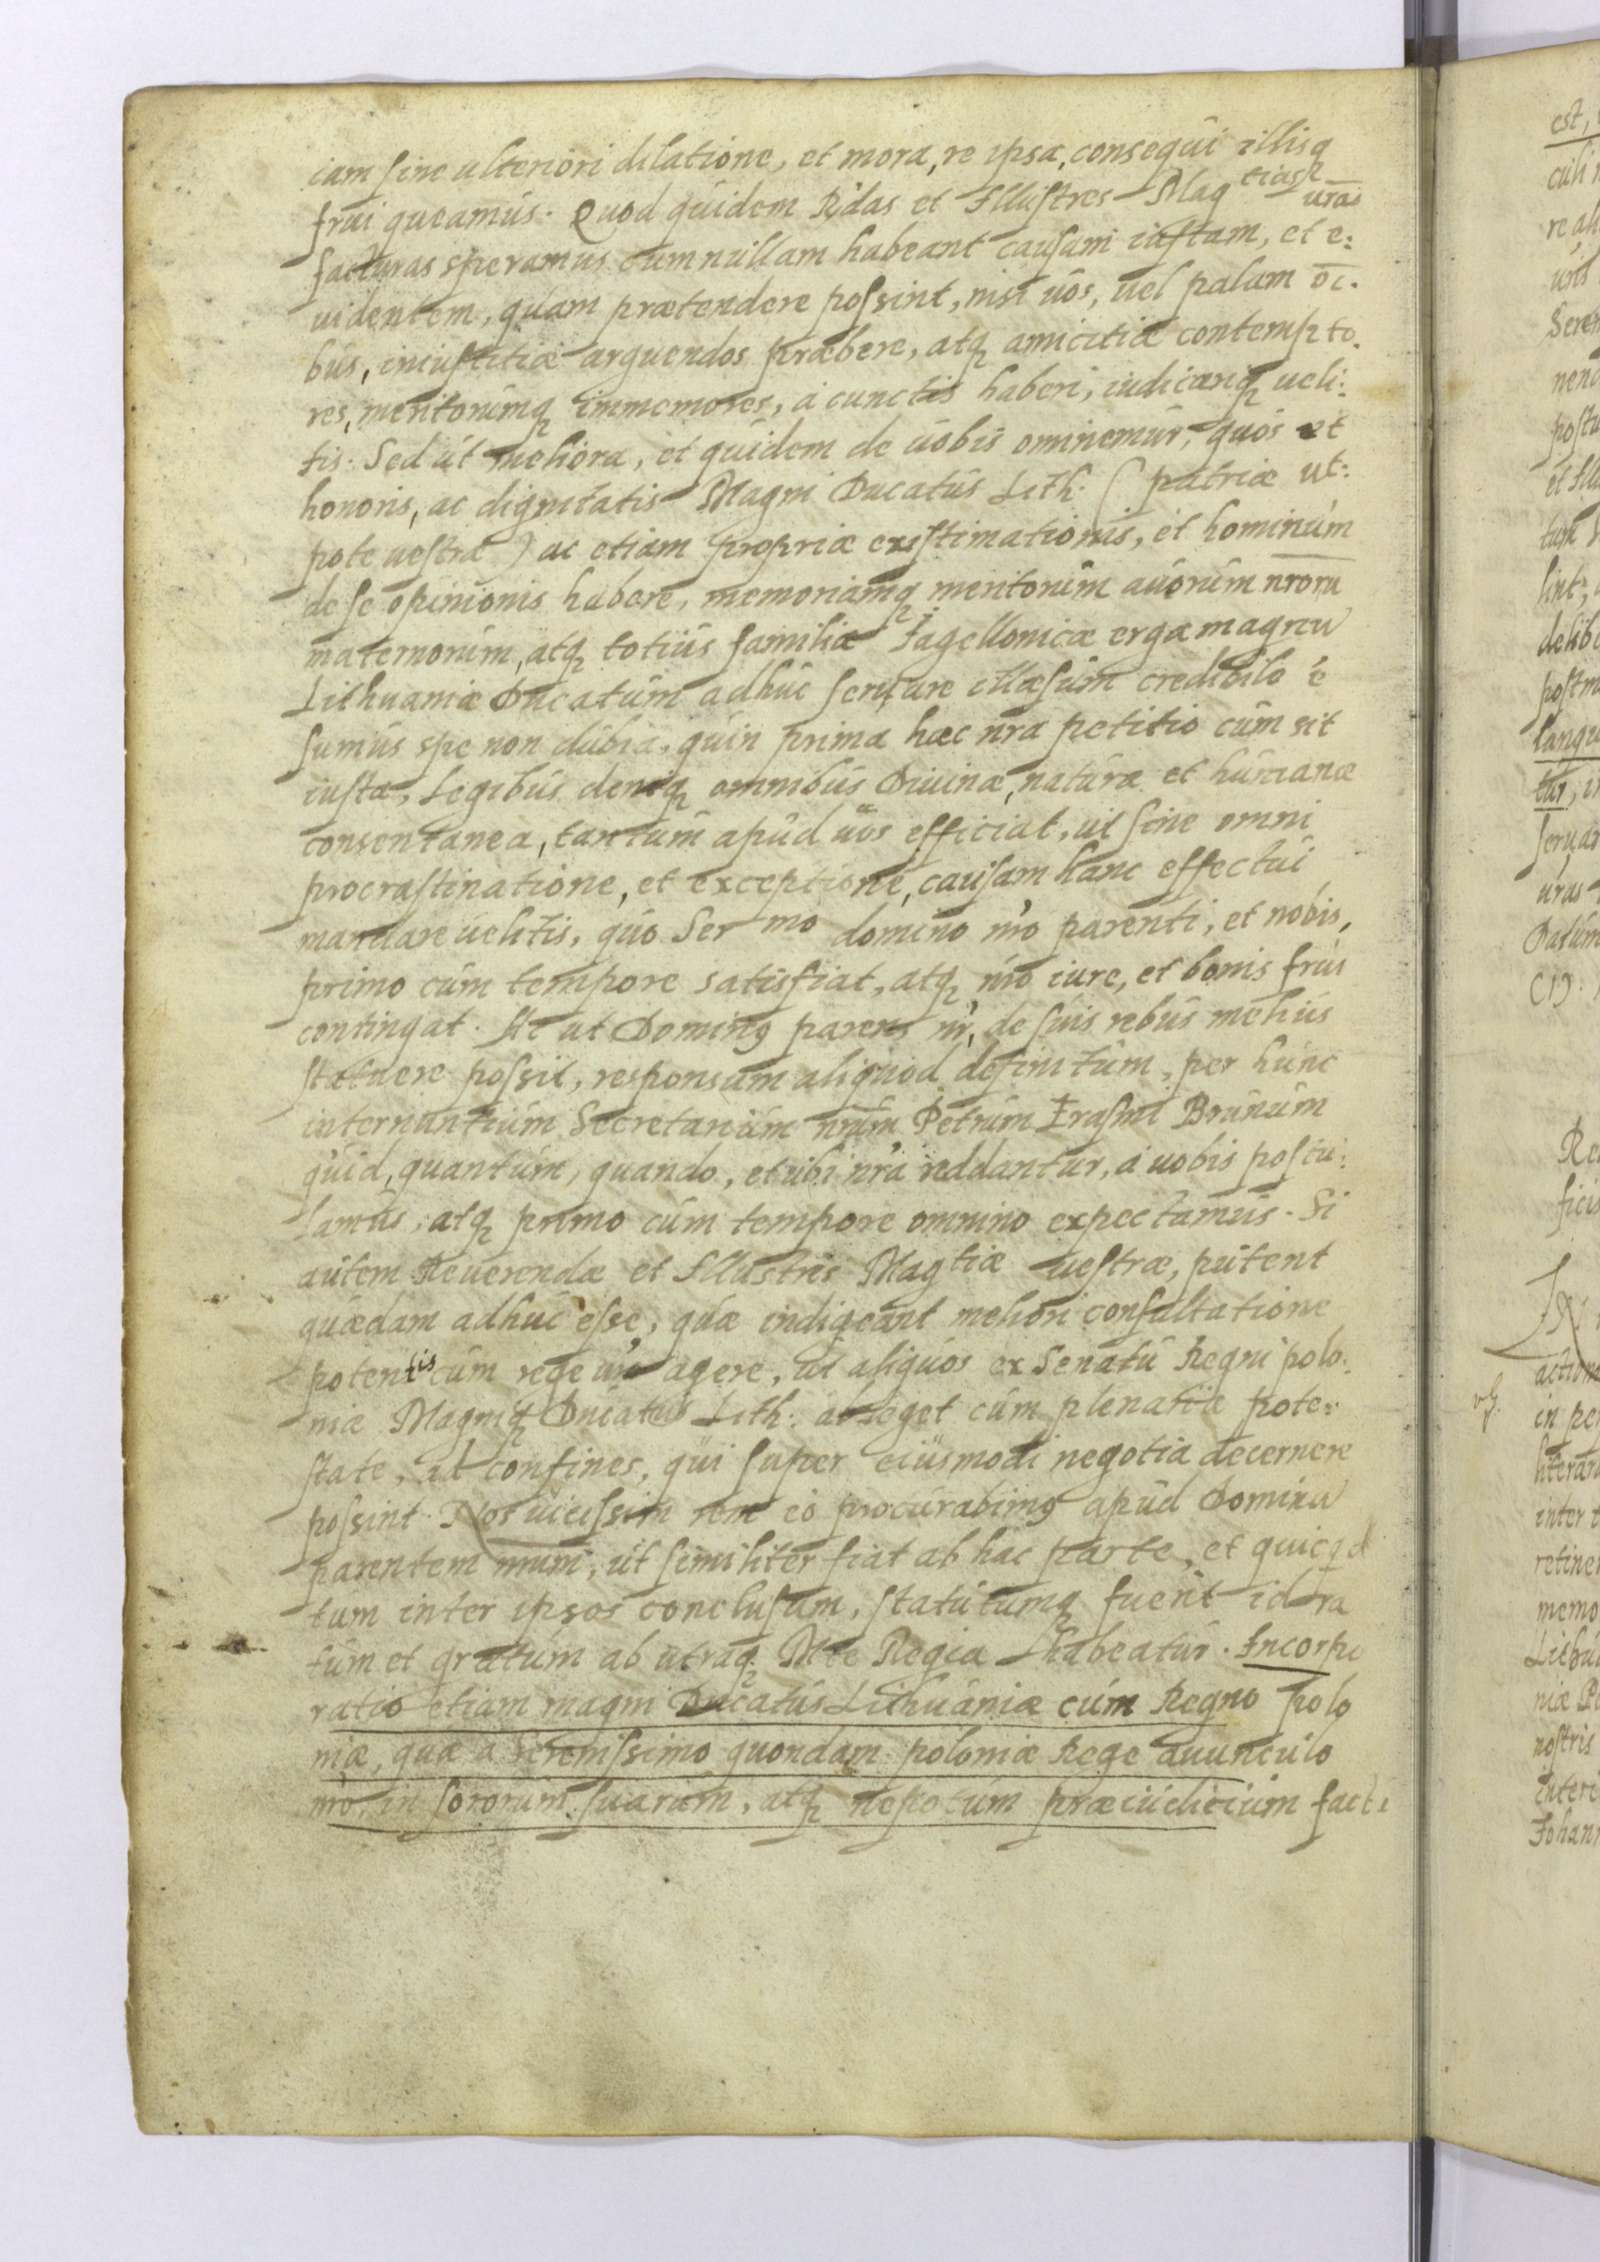 iam sine ulteriori dilatione, et mora, re ipsa, consequi illisq
frui queamus. Quod quidem Rdas et Illustres Mag tias vras
facturas speramus cum nullam habeant causam iustam, et e:
uidentem, quam prætendere possint, nisi uos, uel palam oi.
bus, iniustitiæ arguendos præbere, atq amicitiæ contempto.
res, meritorumq immemores, a cunctis haberi, iudicariq ueli:
tis. Sed ut meliora, et quidem de uobis ominemur, quos et
honoris, ac dignitatis Magni Ducatus Lith. ( patriæ ut:
pote uestræ ) ac etiam propriæ existimationis, et hominum
de se opinionis habere, memoriamq meritorum auorum nrorū
maternorum, atq totius familiæ Jagellonicæ erga magnū
Lithuaniæ Ducatum adhuc seruare illæsum credibile ē
sumus spe non dubia, quin prima hæc nra petitio cum sit
iusta, Legibus deniq omnibus Diuinæ, naturæ et humanæ
consentanea, tantum apud uos efficiat, ut sine omni
procrastinatione, et exceptione, causam hanc effectui
mandare uelitis, quo Ser mo domino nro parenti, et nobis,
primo cum tempore satisfiat, atq nro iure, et bonis frui
contingat. Ut Doming parens nr, de suis rebus melius
statuere possit, responsum aliquod definitum, per hunc
internuntium Secretarium nrum Petrum Erasmi Brunum
quid, quantum, quando, et ubi nra reddantur, a uobis postu:
lamus, atq primo cum tempore omnino expectamus. Si
autem Reuerendæ et Illustris Magtiæ uestræ, putent
quædam adhuc esse, quæ indigeant meliori consultatione
potentis cum rege vro agere, ut aliquos ex Senatu Regni polo.
niæ Magniq Ducatus Lith: ableget cum plenariæ pote:
state, ad confines, qui super eiusmodi negotia decernere
possint. Nos uicissim rem eo procurabimg apud Dominū
parentem nrum, ut similiter fiat ab hac parte, et quicqd
tum inter ipsos conclusum, statutumq fuerit id ra
tum et gratum ab utraq Mte Regia habeatur. Incorpo
ratio etiam magni Ducatus Lithuaniæ cum Regno polo
niæ, quæ a serenissimo quondam poloniæ Rege auunculo
nro, in sororum suarum, atq nepotum præiudicium facta